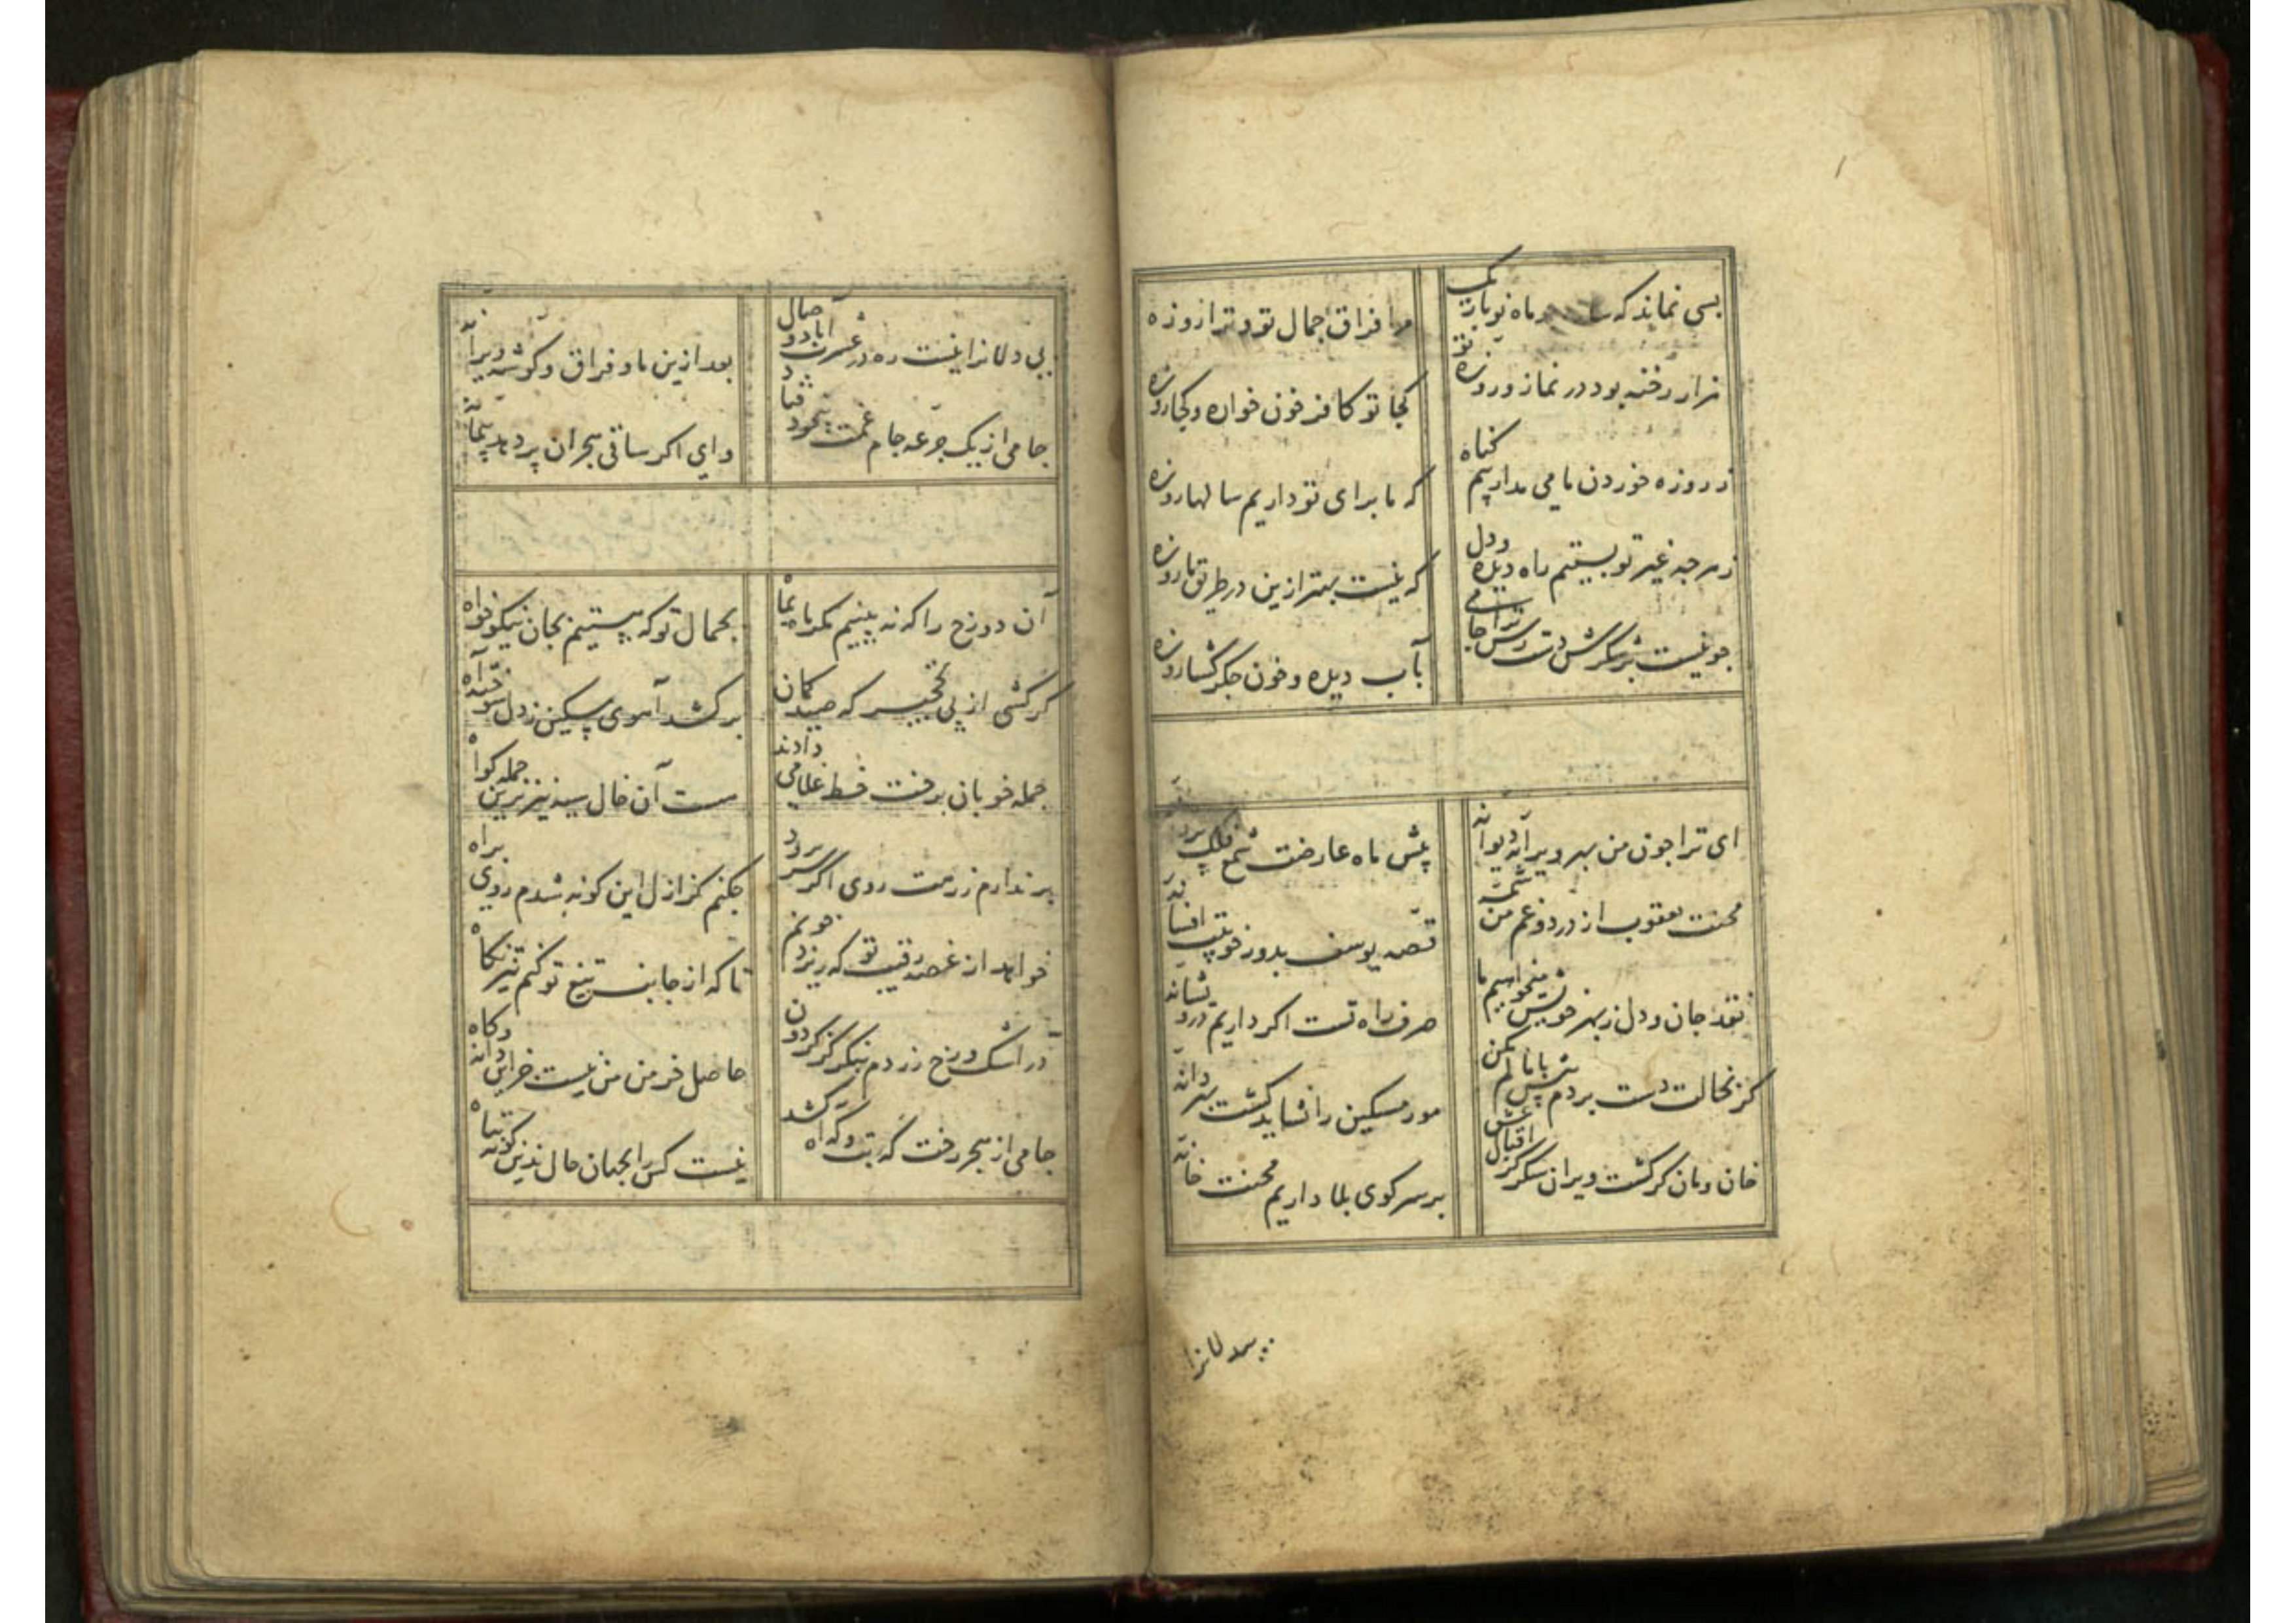 بسی نماند که ماه نو باریک
مرا فراق جمال تو و ترا روزه
هزار رخنه بود در نماز و روزه تو
کجا تو کافر خون خواره و کجا روزه
ز روزه خوردن ما می مدار چشم گناه
که ما برای تو داریم سالها روزه
ز هر چه غیر تو بستیم راه دیده و دل
که نیست بهتر ازین در طریق ما روزه
چو نیست بر شکرش دست رس ترا جامی
بآب دیده و خون جگر گشا روزه
ای ترا چون من بهر ویرانه دیوانه
پیش ماه عارضت شمع فلک پروانه
محنت یعقوب از درد و غم من شمه
قصه یوسف بدور خوبیت افسانه
نقد جان و دل ز بهر خویش میخواهیم ما
صرف راه تست اگر داریم درویشانه
کز بخالت دست بردم پیش پامالم مکن
مور مسکین را نشاید کشت بهر دانه
خان و مان گر گشت ویران شکر کز اقبال عشق
بر سر کوی بلا داریم محنت خانه
بیدلانرا
بی دلانرا نیست ره در عشرت آباد وصال
بعد ازین ما و فراق و گوشه ویرانه
جامی از یک جرعه جام غمت بیخود فتاد
وای اگر ساقی هجران پر دهد پیمانه
آن دو رخ را که نه بینیم مگر ماه بماه
بجمال تو که هستیم بجان نیکوخواه
گر کشی از پی نخجیر که صید کمان
بر کشد آهوی مسکین ز دل سوخته آه
جمله خوبان برخت خط غلامی دادند
هست آن خال سیه نیز برین جمله گواه
بر ندارم ز رهت روی اگر سر برود
چکنم کز ازل این گونه شدم روی براه
خواهد از غصه رقیب تو که ریزد خونم
تا که از جانب تیغ تو کنم تیز نگاه
در اشک و رخ زردم بنگر کز گردون
حاصل خرمن من نیست جز این دانه و کاه
جامی از هجر رخت گه تب و گه آه کشد
نیست کس را بجهان حال بدین گونه تباه